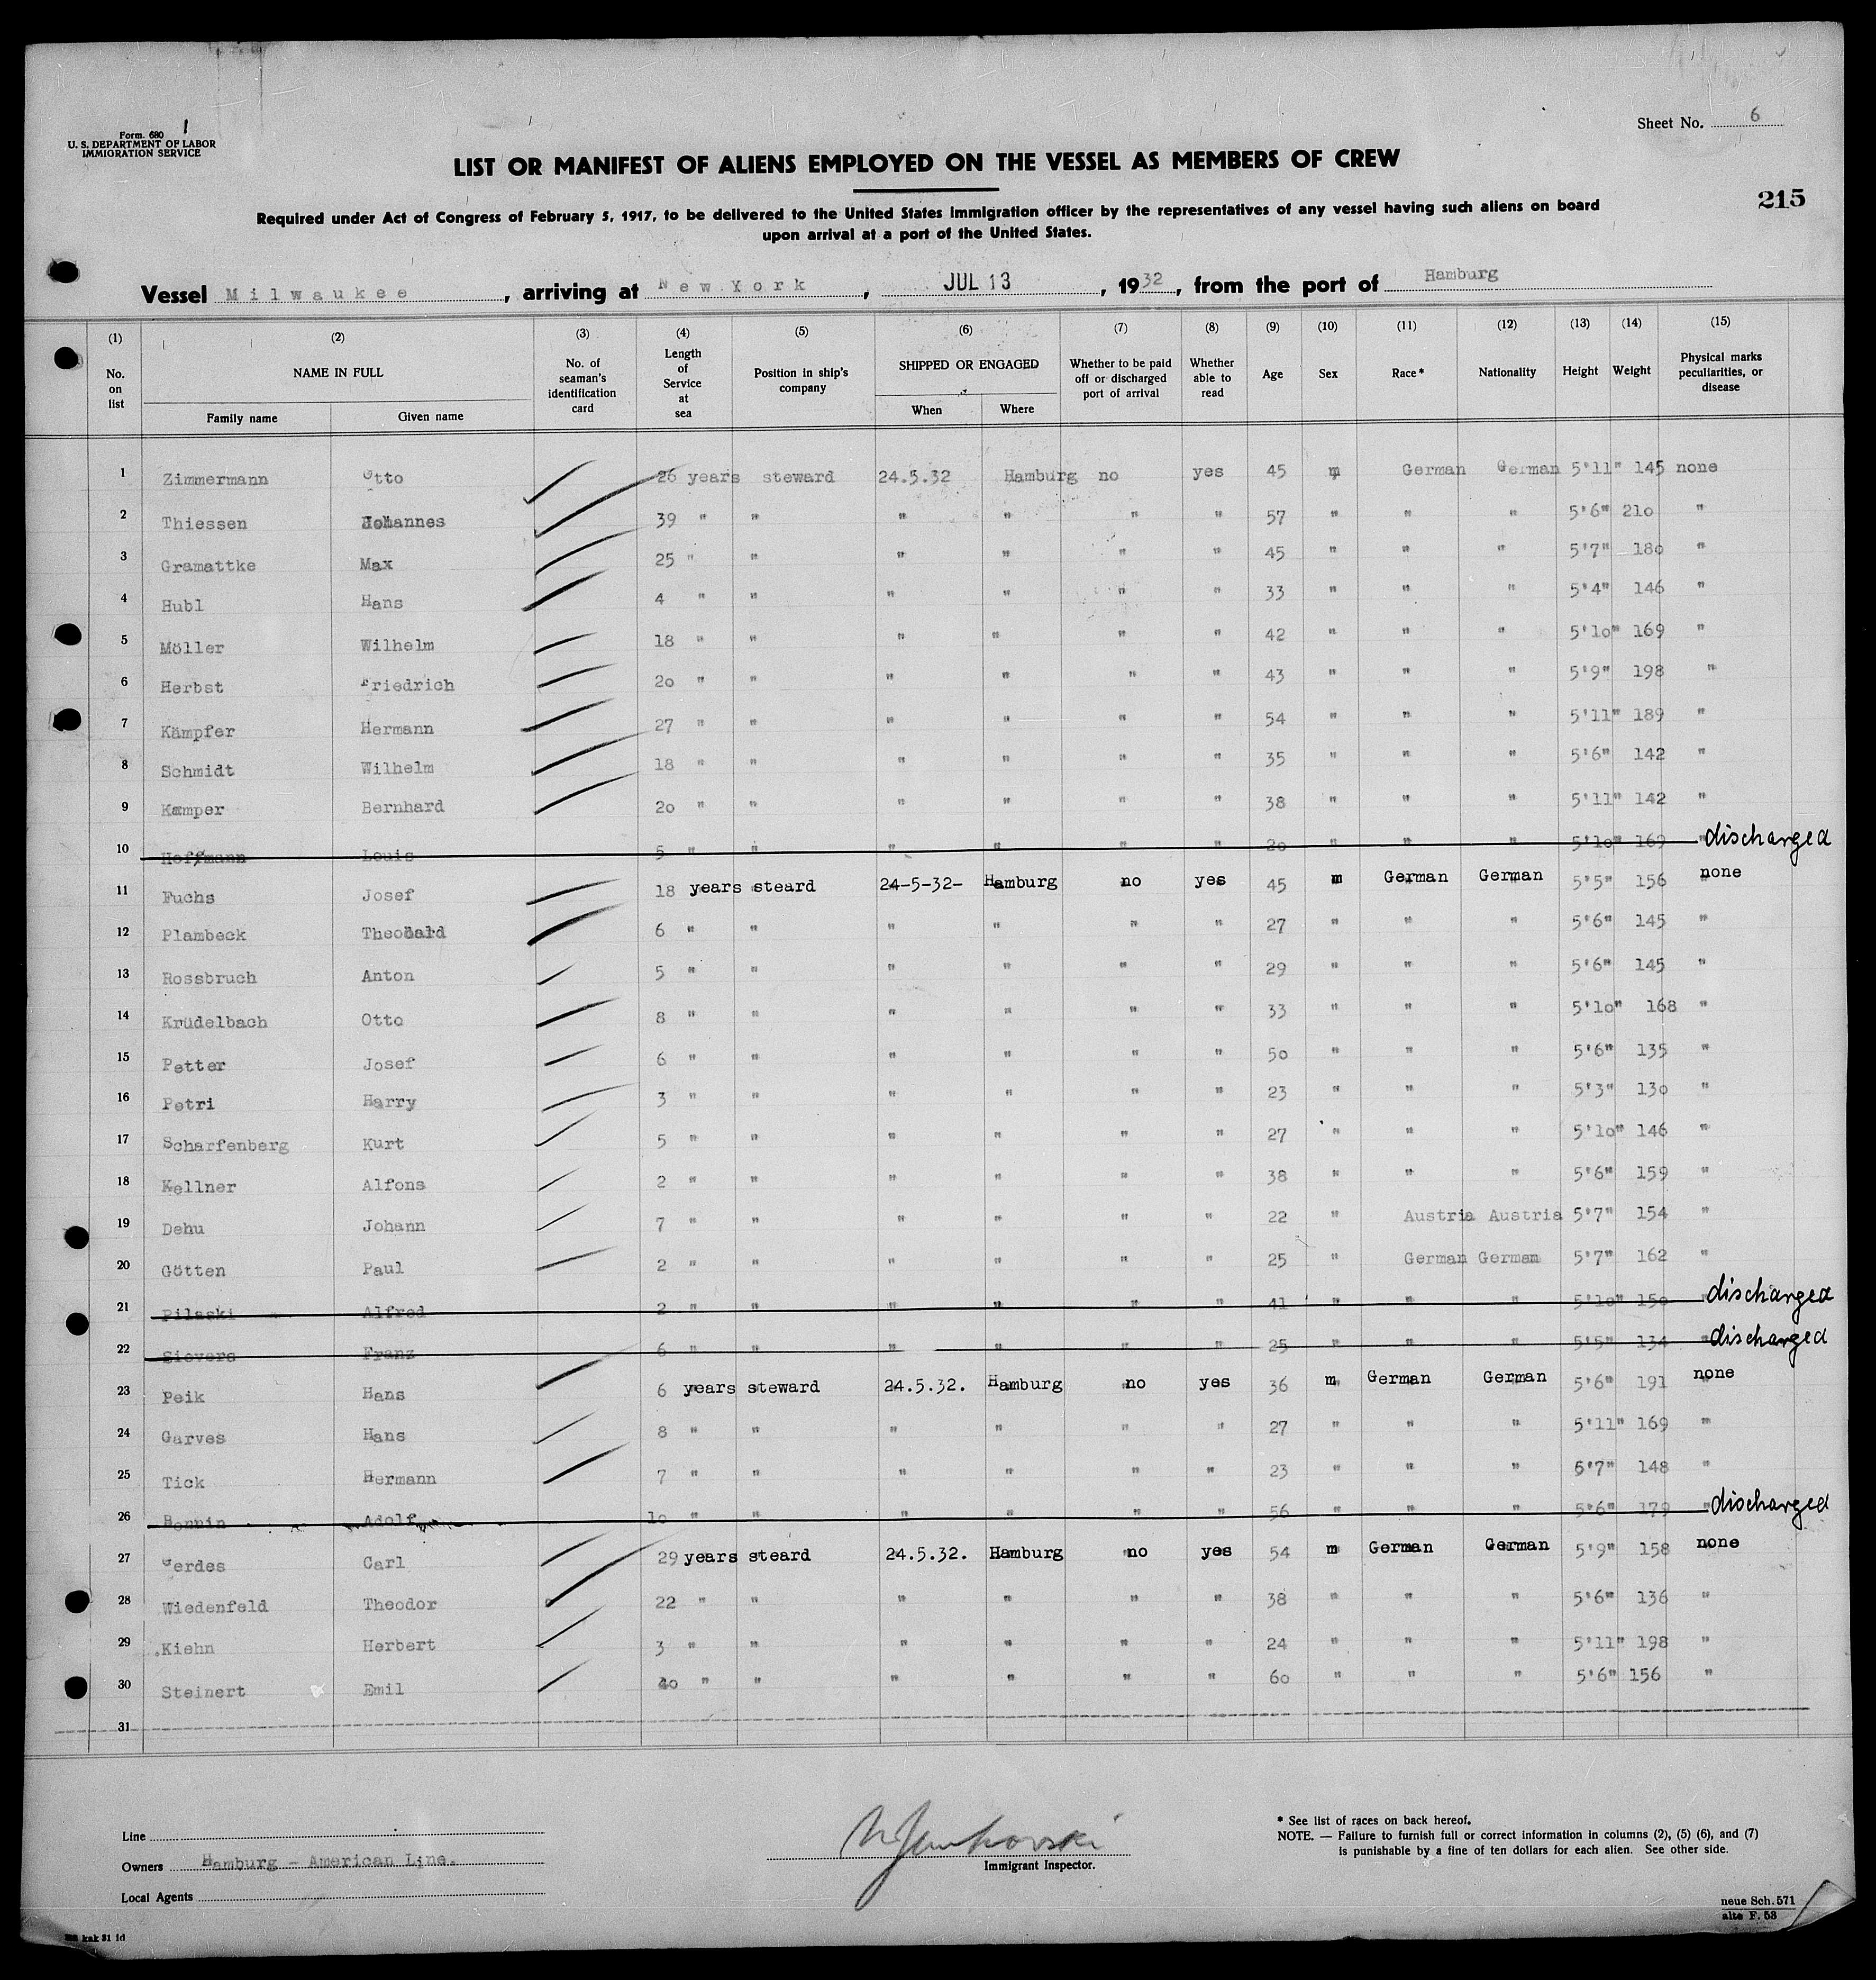 Form. 680 1
U. S. DEPARTMENT OF LABOR
IMMIGRATION SERVICE
Sheet No. 6
LIST OR MANIFEST OF ALIENS EMPLOYED ON THE VESSEL AS MEMBERS OF CREW
215
Required under Act of Congress of February 5, 1917, to be delivered to the United States Immigration officer by the representatives of any vessel having such aliens on board
upon arrival at a port of the United States.
Vessel Milwaukee, arriving at New York, JUL 13, 1932, from the port of Hamburg
(1) (2) (3) (4) (5) (6) (7) (8) (9) (10) (11) (12) (13) (14) (15)
No. on list NAME IN FULL Family name Given name No. of seaman's identification card Length of Service at sea Position in ship's company SHIPPED OR ENGAGED When Where Whether to be paid off or discharged port of arrival Whether able to read Age Sex Race* Nationality Height Weight Physical marks peculiarities, or disease
1 Zimmermann Otto 26 years steward 24.5.32 Hamburg no yes 45 m German German 5'11" 145 none
2 Thiessen Johannes 39 " " " " " " 57 " " " 5'6" 210 "
3 Gramattke Max 25 " " " " " " 45 " " " 5'7" 180 "
4 Hubl Hans 4 " " " " " " 33 " " " 5'4" 146 "
5 Möller Wilhelm 18 " " " " " " 42 " " " 5'10" 169 "
6 Herbst Friedrich 20 " " " " " " 43 " " " 5'9" 198 "
7 Kämpfer Hermann 27 " " " " " " 54 " " " 5'11" 189 "
8 Schmidt Wilhelm 18 " " " " " " 35 " " " 5'6" 142 "
9 Kamper Bernhard 20 " " " " " " 38 " " " 5'11" 142 "
10 Hoffmann Louis 5 " " " " " " 20 " " " 5'10" 169 " discharged
11 Fuchs Josef 18 years steard 24-5-32- Hamburg no yes 45 m German German 5'5" 156 none
12 Plambeck Theobald 6 " " " " " " 27 " " " 5'6" 145 "
13 Rossbruch Anton 5 " " " " " " 29 " " " 5'6" 145 "
14 Krüdelbach Otto 8 " " " " " " 33 " " " 5'10" 168 "
15 Petter Josef 6 " " " " " " 50 " " " 5'6" 135 "
16 Petri Harry 3 " " " " " " 23 " " " 5'3" 130 "
17 Scharfenberg Kurt 5 " " " " " " 27 " " " 5'10" 146 "
18 Kellner Alfons 2 " " " " " " 38 " " " 5'6" 159 "
19 Dehu Johann 7 " " " " " " 22 " Austria Austria 5'7" 154 "
20 Götten Paul 2 " " " " " " 25 " German German 5'7" 162 "
21 Pilaski Alfred 2 " " " " " " 41 " " " 5'10" 150 " discharged
22 Sievers Franz 6 " " " " " " 25 " " " 5'5" 134 " discharged
23 Peik Hans 6 years steward 24.5.32. Hamburg no yes 36 m German German 5'6" 191 none
24 Garves Hans 8 " " " " " " 27 " " " 5'11" 169 "
25 Tick Hermann 7 " " " " " " 23 " " " 5'7" 148 "
26 Adolf 10 " " " " " " 56 " " " 5'6" 179 " discharged
27 Gerdes Carl 29 years steard 24.5.32. Hamburg no yes 54 m German German 5'9" 158 none
28 Wiedenfeld Theodor 22 " " " " " " 38 " " " 5'6" 136 "
29 Kiehn Herbert 3 " " " " " " 24 " " " 5'11" 198 "
30 Steinert Emil 40 " " " " " " 60 " " " 5'6" 156 "
31
Line
Owners Hamburg - American Line.
Local Agents
Immigrant Inspector.
* See list of races on back hereof.
NOTE. — Failure to furnish full or correct information in columns (2), (5) (6), and (7)
is punishable by a fine of ten dollars for each alien. See other side.
neue Sch. 571
alte F. 53
kak 31 1d